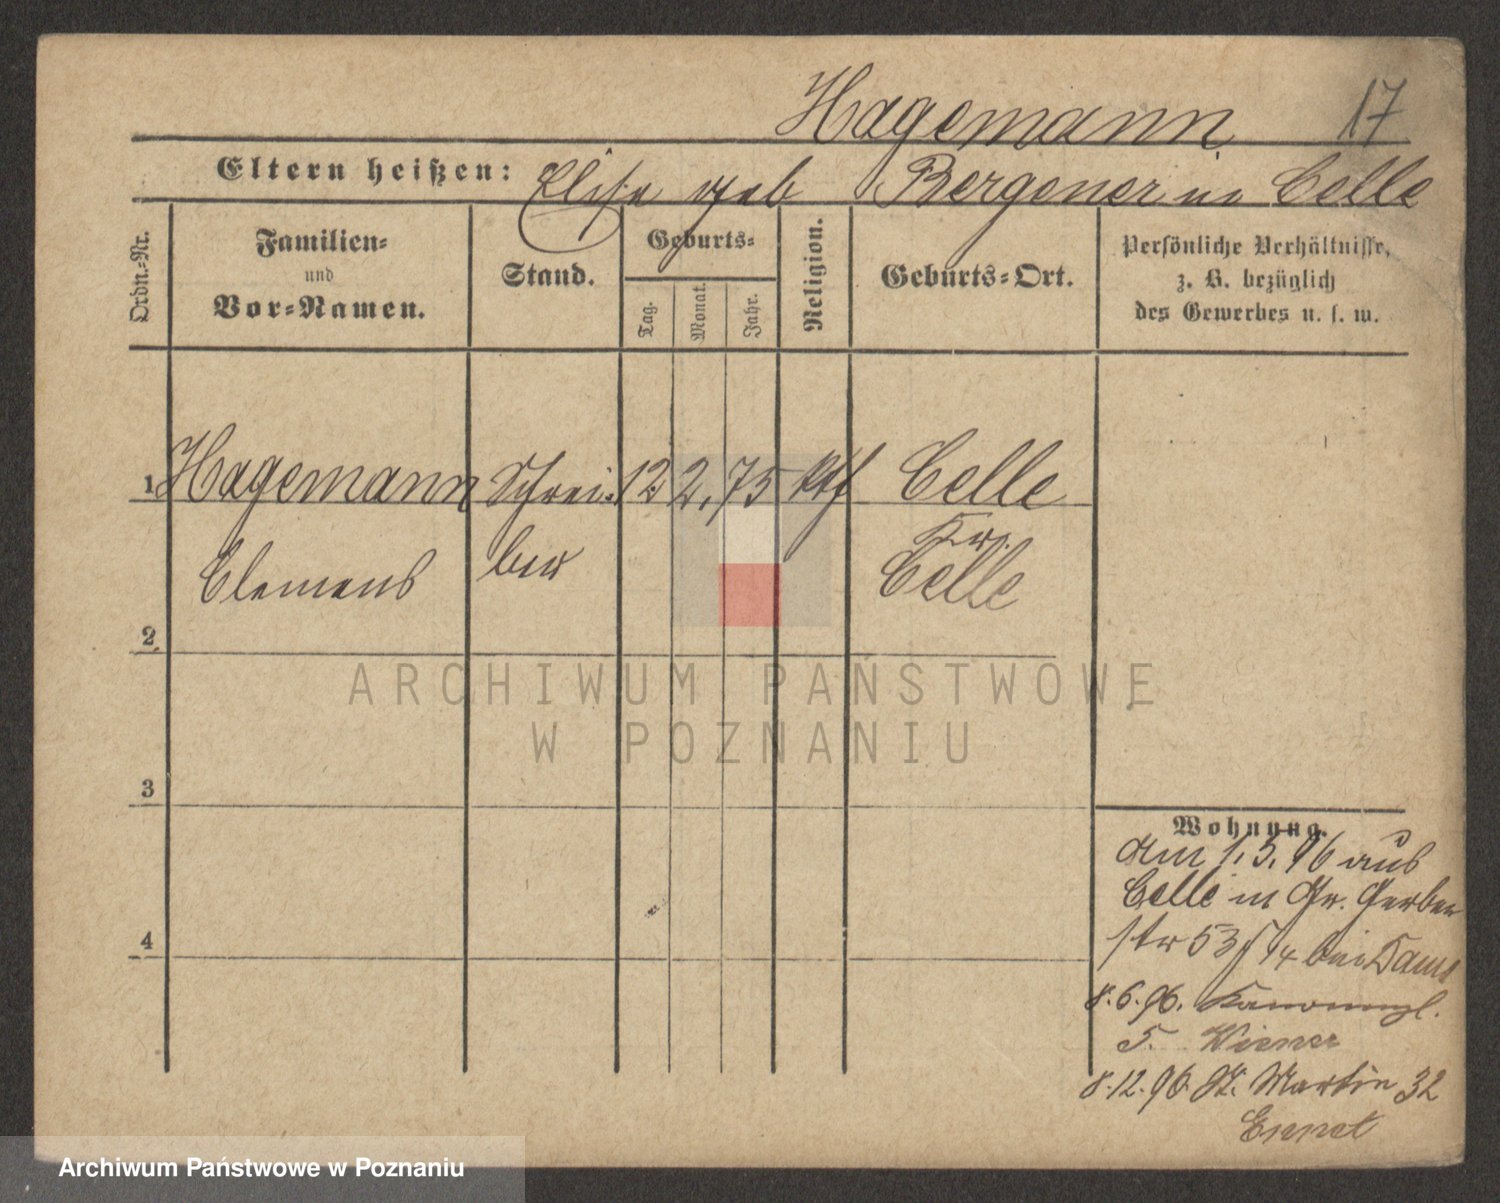 Hagemann 17
Eltern heißen: Elise geb Bergener in Celle
Ordn.-Nr.
Familien-
und
Vor-Namen.
Stand.
Geburts-
Tag.
Monat.
Jahr.
Religion.
Geburts-Ort.
Persönliche Verhältnisse,
z. B. bezüglich
des Gewerbes u. s. w.
1 Hagemann Schrei- 12 2. 75 kth Celle
Kr.
Clemens ber Celle
2
ARCHIWUM PAŃSTWOWE
W POZNANIU
3
Wohnung.
am 1. 5. 96 aus
Celle in Gr. Gerber
str 53 bei
4
8. 6. 96.
5. Wiener
8. 12. 96. St. Martin 32
Archiwum Państwowe w Poznaniu